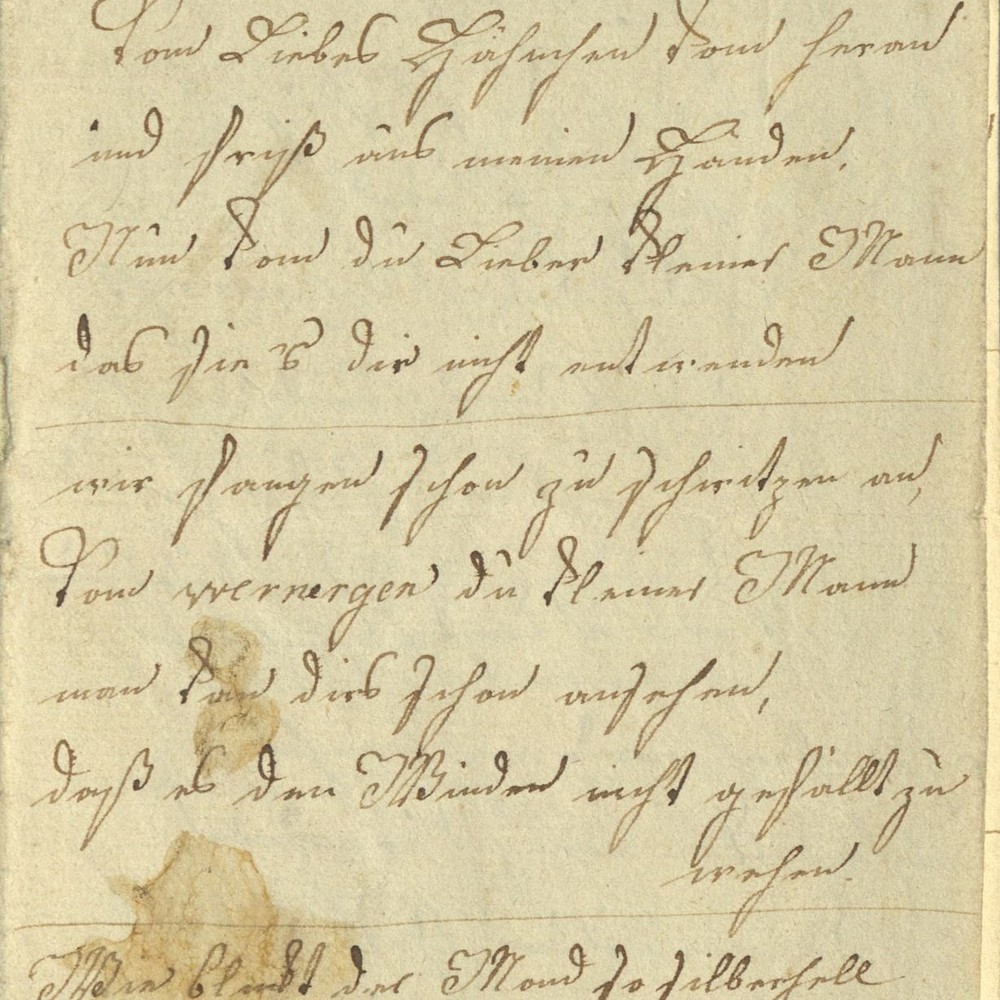 Kom Liebes Hähnchen kom heran
und friß aus meinen Händen.
Nun kom du Lieber kleiner Mann
das sie's dir nicht entwenden
wir fangen schon zu schwitzen an,
Kom du kleiner Mann
man kan dirs schon ansehen,
daß es den Winden nicht gefällt zu
wehen.
Wie blinkt der Mond so silberhell